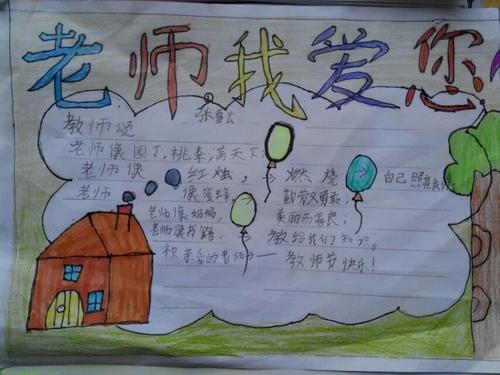 老师我爱您
教师颂
张雪云
老师像园丁,桃李满天下,
老师像红烛,燃烧自己照亮我们,
老师像蜜蜂,勤劳勇敢;
老师像妈妈,美丽而善良;
老师像书籍,教给我们知识。
祝亲爱的老师——教师节快乐!